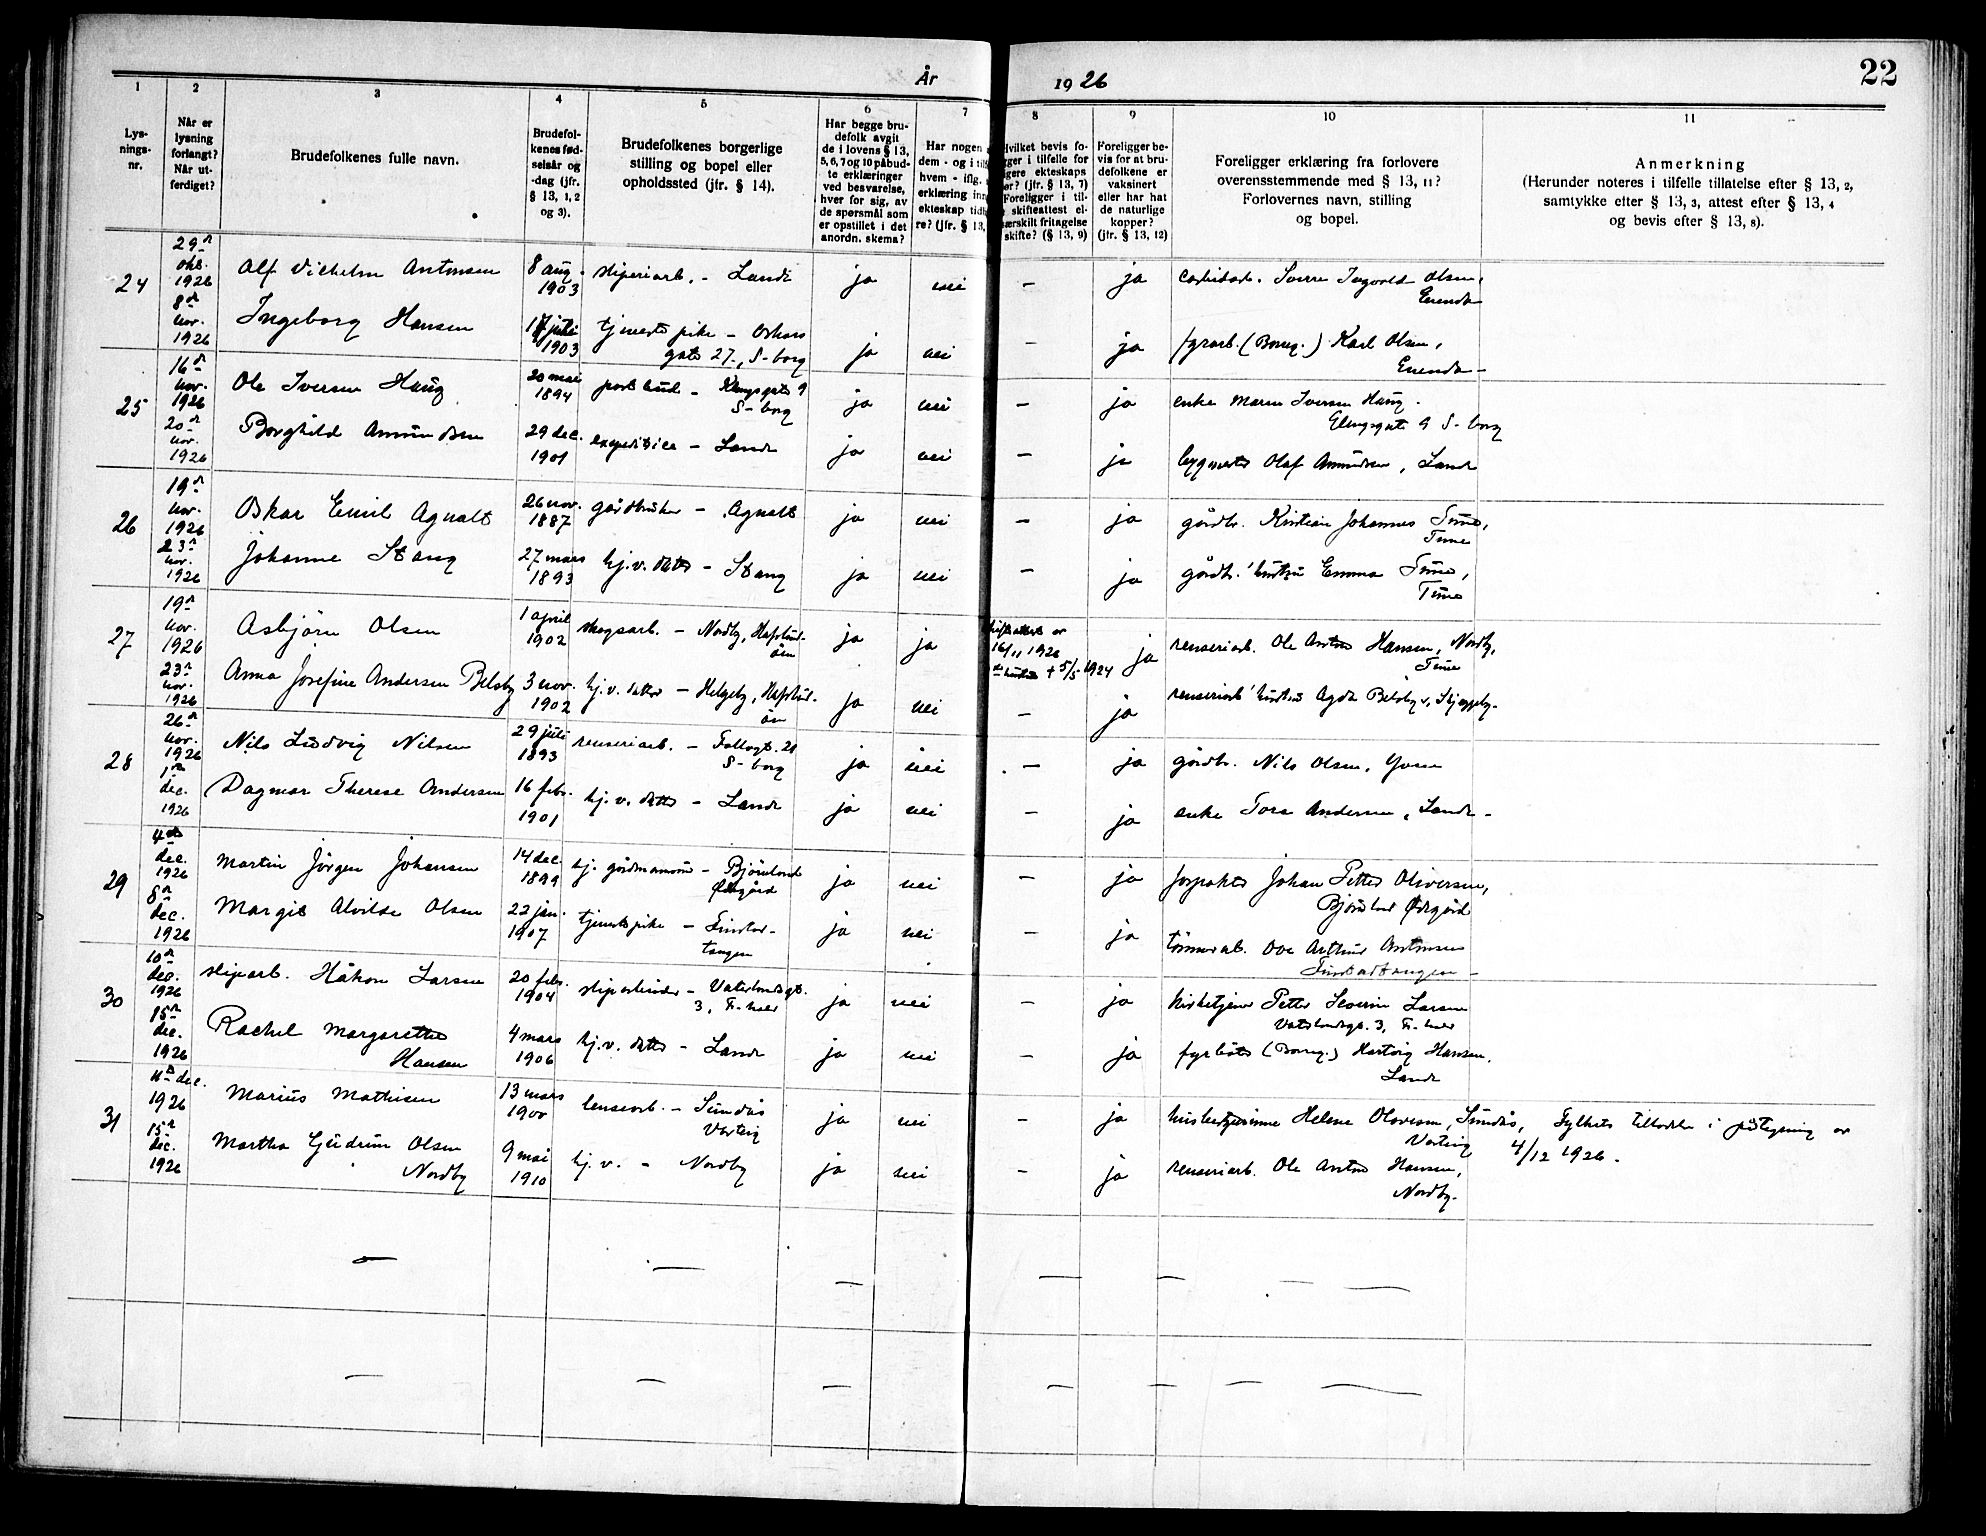 År 1926
22
1
2
3
4
5
6
7
8
9
10
11
Lys-
nings-
nr.
Når er
lysning
forlangt?
Når ut-
ferdiget?
Brudefolkenes fulle navn.
Brudefol-
kenes fød-
selsår og
-dag (jfr.
§ 13, 1, 2
og 3).
Brudefolkenes borgerlige
stilling og bopel eller
opholdssted (jfr. § 14).
Har begge bru-
defolk avgit
de i lovens § 13,
5, 6, 7 og 10 påbud-
te erklæringer
ved besvarelse,
hver for sig, av
de spørsmål som
er opstillet i det
anordn. skema?
Har nogen
dem - og i
hvem - iflg.
erklæring
ekteskap tidl
re? (jfr. § 13,
Hvilket bevis fo-
gger i tilfelle for
gere ekteskaps
ør? (jfr. § 13, 7)
Foreligger i til-
skifteattest el-
særskilt fritagelse
skifte? (§ 13, 9)
Foreligger be-
vis for at bru-
defolkene er
vaksinert
eller har hat
de naturlige
kopper?
(jfr. § 13, 12)
Foreligger erklæring fra forlovere
overensstemmende med § 13, 11?
Forlovernes navn, stilling
og bopel.
Anmerkning
(Herunder noteres i tilfelle tillatelse efter § 13, 2,
samtykke efter § 13, 3, attest efter § 13, 4
og bevis efter § 13, 8).
24
29
okt.
1926
Alf Vilhelm Antonsen
8 aug.
1903
sliperiarb. - Lande
ja
nei
—
ja
Sverre Ingvald Olsen,
8
nov.
1926
Ingeborg Hansen
juli
1903
tjenestepike - Oskars
gate 27, S-borg
ja
nei
—
ja
fyrarb. (Borreg.) Karl Olsen,
25
16
nov.
1926
Ole Iversen Haug
20 mai
1894
postbud - gate 9
S-borg
ja
nei
—
ja
enke Maren Iversen Haug
9 S-borg
20
nov.
1926
Borghild Amundsen
29 dec.
1901
expeditrice - Lande
ja
nei
—
ja
Olaf Amundsen, Lande
26
19
nov.
1926
Oskar Emil Agnalt
26 nov.
1887
gårdbruker - Agnalt
ja
nei
—
ja
gårdbr. Kristian Johannes Tune,
Tune
23
nov.
1926
Johanne Stang
27 mars
1893
hj.v. datter - Stang
ja
nei
—
ja
gårdbr. hustru Emma Tune,
Tune
27
19
nov.
1926
Asbjörn Olsen
1 april
1902
skogsarb. - Nordby, Hafslund-
öen
ja
ja
skifteattest av
16/11 1926
hustru † 5/5 1924
ja
renseriarb. Ole Anton Hansen, Nordby,
Tune
23
nov.
1926
Anna Josefine Andersen Belsby
3 nov.
1902
hj.v. datter - Helgeby, Hafslund-
öen
ja
nei
—
ja
renseriarb. hustru Agda Belsby, Skjeggeby.
28
26
nov.
1926
Nils Ludvig Nilsen
29 juli
1893
renseriarb. - 21
S-borg
ja
nei
—
ja
gårdbr. Nils Olsen, Yven
1
dec.
1926
Dagmar Therese Andersen
16 febr.
1901
hj.v. datter - Lande
ja
nei
—
ja
enke Tora Andersen, Lande -
29
4
dec.
1926
Martin Jörgen Johansen
14 dec.
1899
hj. gårdmannssön - Björnland
Ødegård
ja
nei
—
ja
forpakter Johan Petter Oliversen,
Björnland Ødegård
8
dec.
1926
Margit Alvilde Olsen
22 jan.
1907
tjenestepike -
tangen
ja
nei
—
ja
tömmerarb. Ove Arthur Antonsen
30
10
dec.
1926
sliperiarb. Håkon Larsen
20 febr.
1904
sliperiarbeider - Vaterlandsgt.
3, Fr-stad
ja
nei
—
ja
kirketjener Petter Severin Larsen
Vaterlandsgt. 3, Fr-stad
15
dec.
1926
Rachel Margarethe
Hansen
4 mars
1906
hj.v. datter - Lande
ja
nei
—
ja
fyrböter (Borreg.) Hartvig Hansen,
Lande
31
11 dec.
1926
Marius Mathisen
13 mars
1900
lensearb. - Sundås
Varteig
ja
nei
—
ja
husbestyrerinne Helene Olavesen, Sundås,
Varteig
Fylkets tilladelse i påtegning av
4/12 1926.
15
dec.
1926
Martha Gudrun Olsen
Nordby
9 mai
1910
hj.v. - Nordby
ja
nei
—
ja
renseriarb. Ole Anton Hansen,
Nordby.